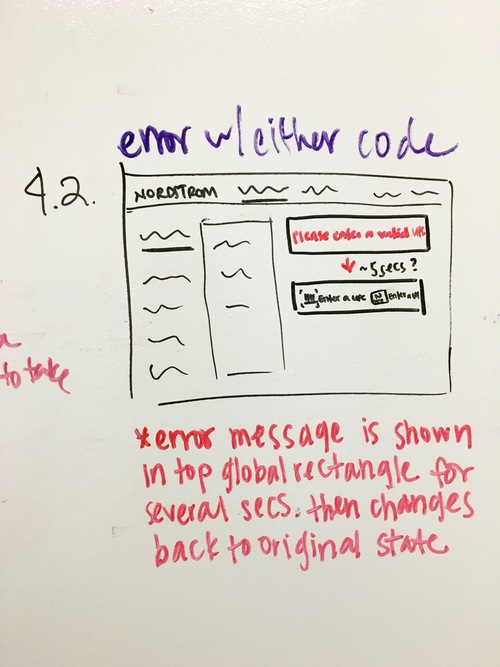 error w/ either code
4.2.
NORDSTROM
Please enter a valid UPC
~5secs?
Enter a UPC N Enter a
*error message is shown
in top global rectangle for
several secs. then changes
back to original state
a
to take